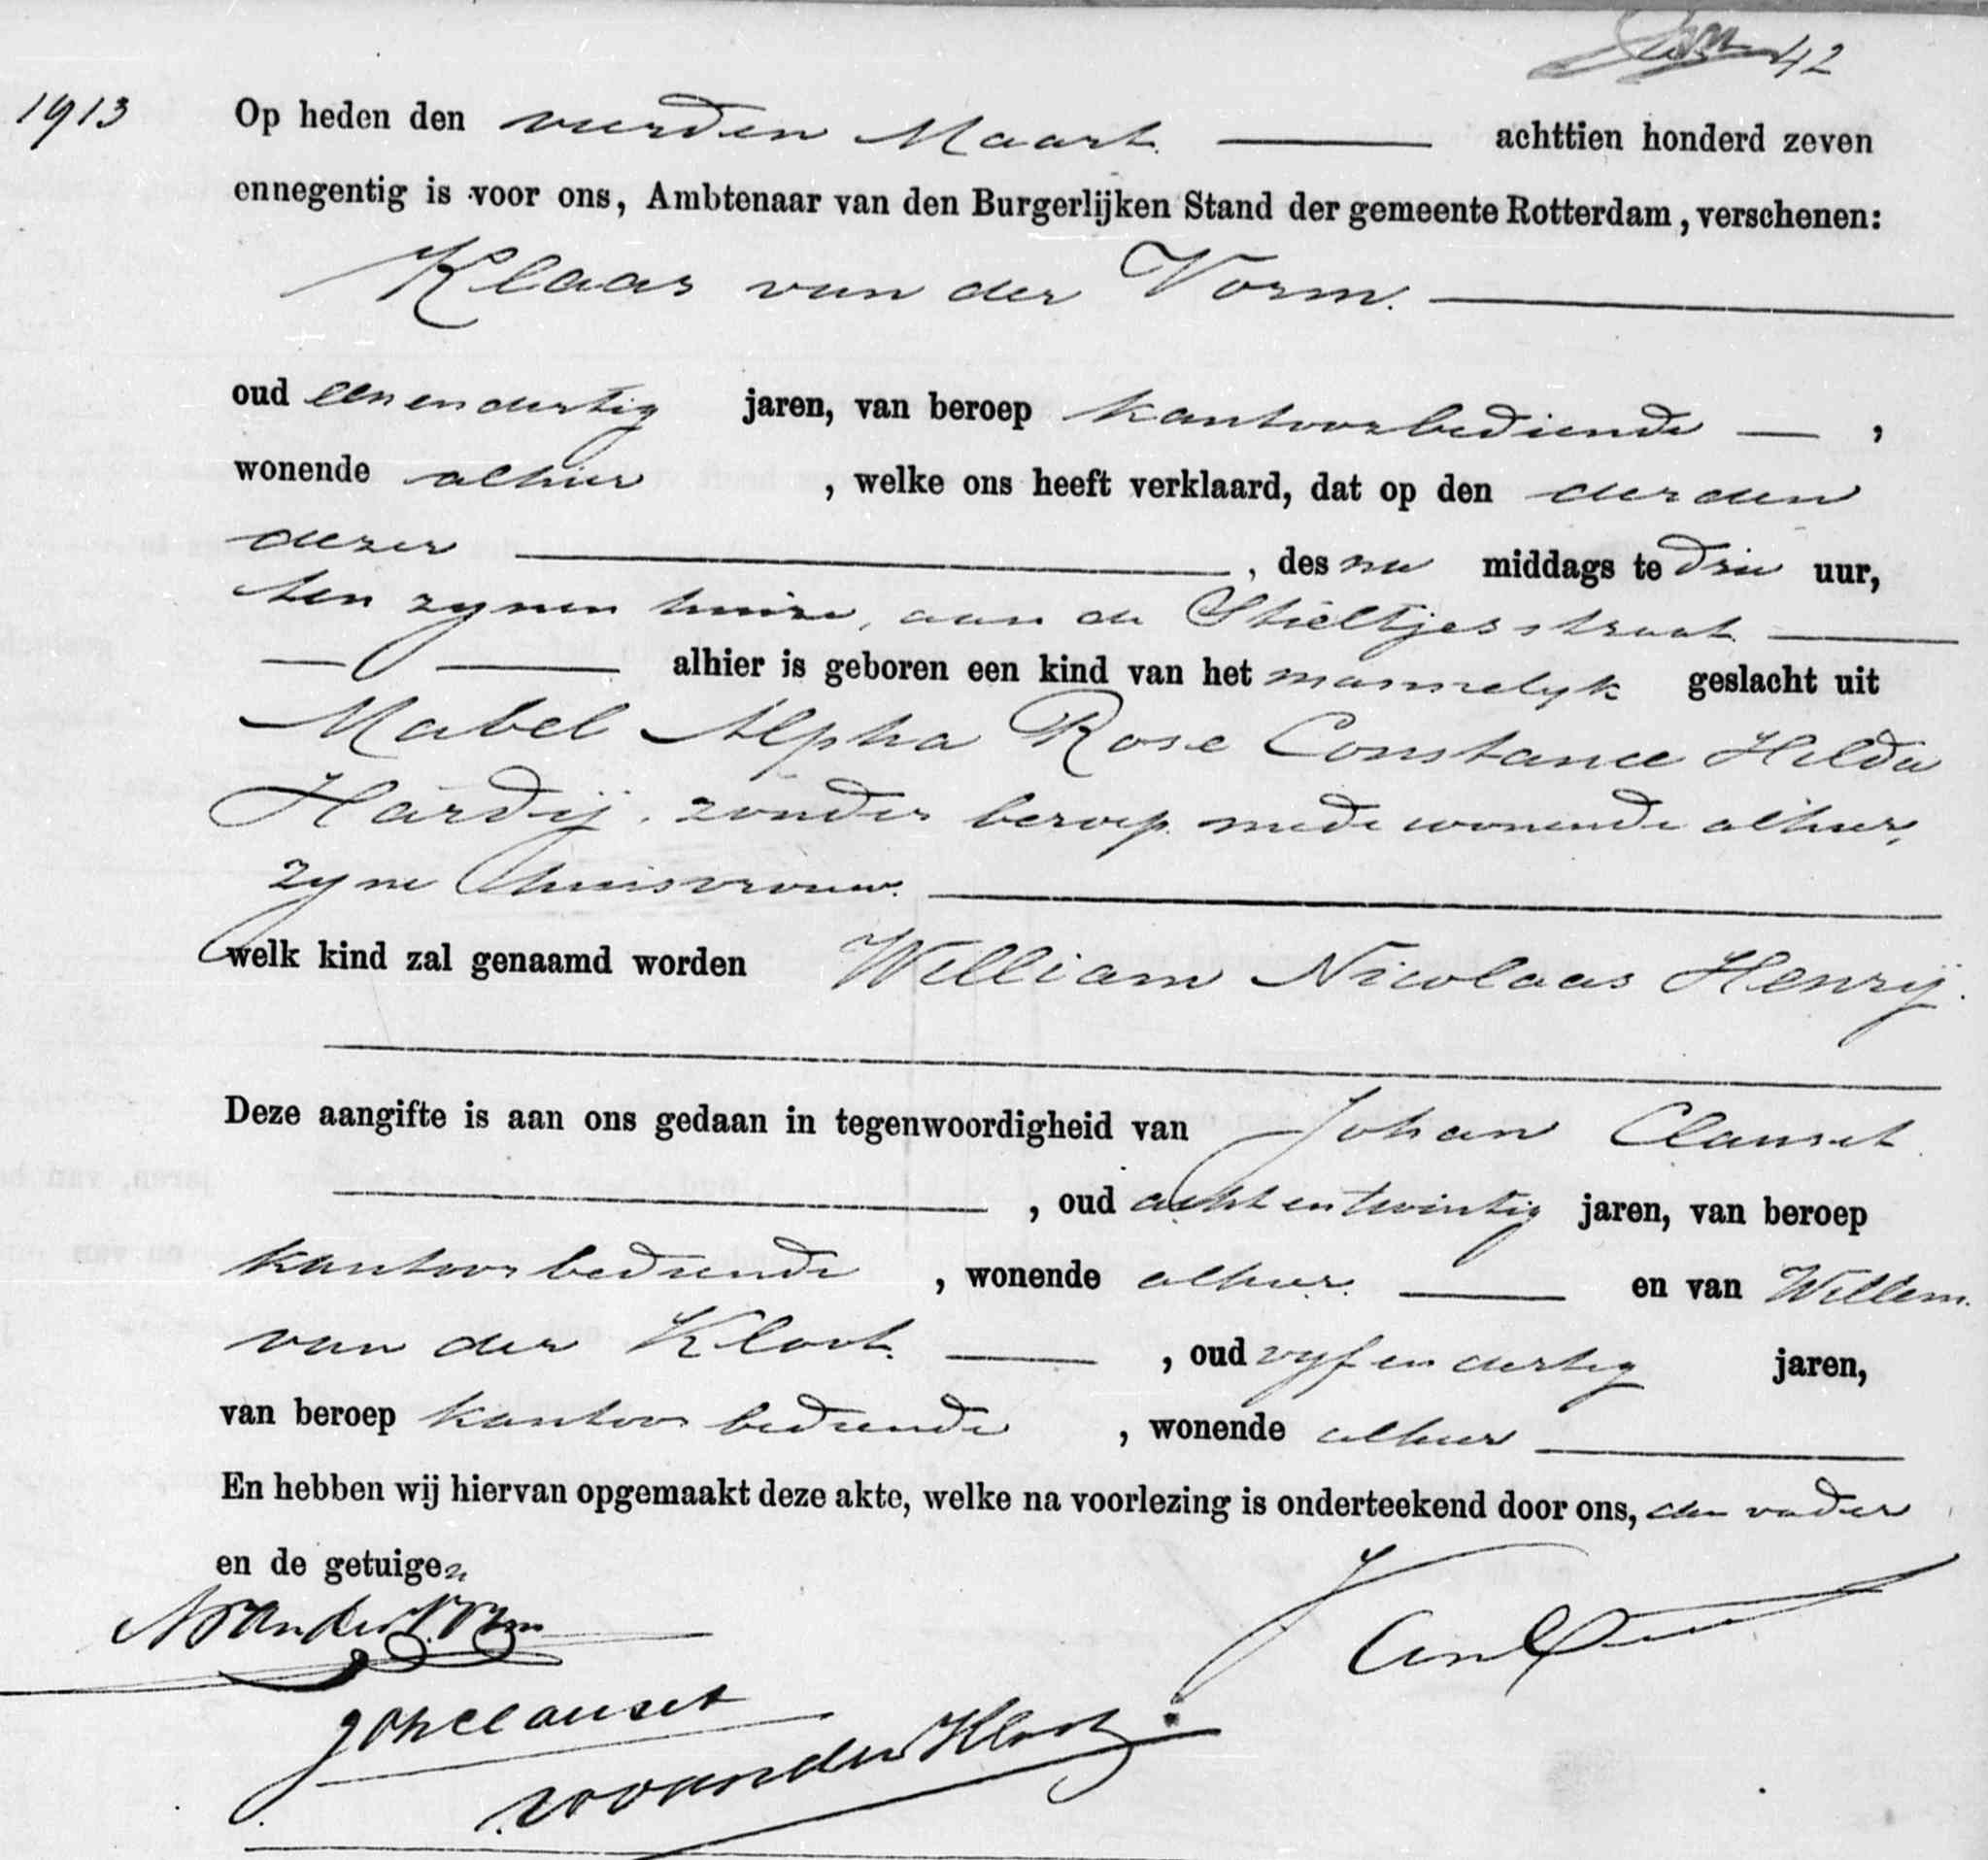 42
1913
Op heden den vierden Maart achttien honderd zeven
ennegentig is voor ons, Ambtenaar van den Burgerlijken Stand der gemeente Rotterdam, verschenen:
Klaas van der Vorm.
oud een en dertig jaren, van beroep kantoorbediende,
wonende alhier, welke ons heeft verklaard, dat op den derden
dezer, des na middags te drie uur,
ten zynen huize, aan de Stieltjesstraat
alhier is geboren een kind van het mannelyk geslacht uit
Mabel Alpha Rose Constance Hilda
Hardij, zonder beroep mede wonende alhier,
zyne huisvrouw.
welk kind zal genaamd worden William Nicolaas Henrij.
Deze aangifte is aan ons gedaan in tegenwoordigheid van Johan Clauset
, oud acht en twintig jaren, van beroep
kantoorbediende, wonende alhier. en van Willem
van der Kloot., oud vyf en dertig jaren,
van beroep kantoorbediende, wonende alhier
En hebben wij hiervan opgemaakt deze akte, welke na voorlezing is onderteekend door ons, den vader
en de getuigen
NvanderVorm
Joh Clauset
WvanderKloot